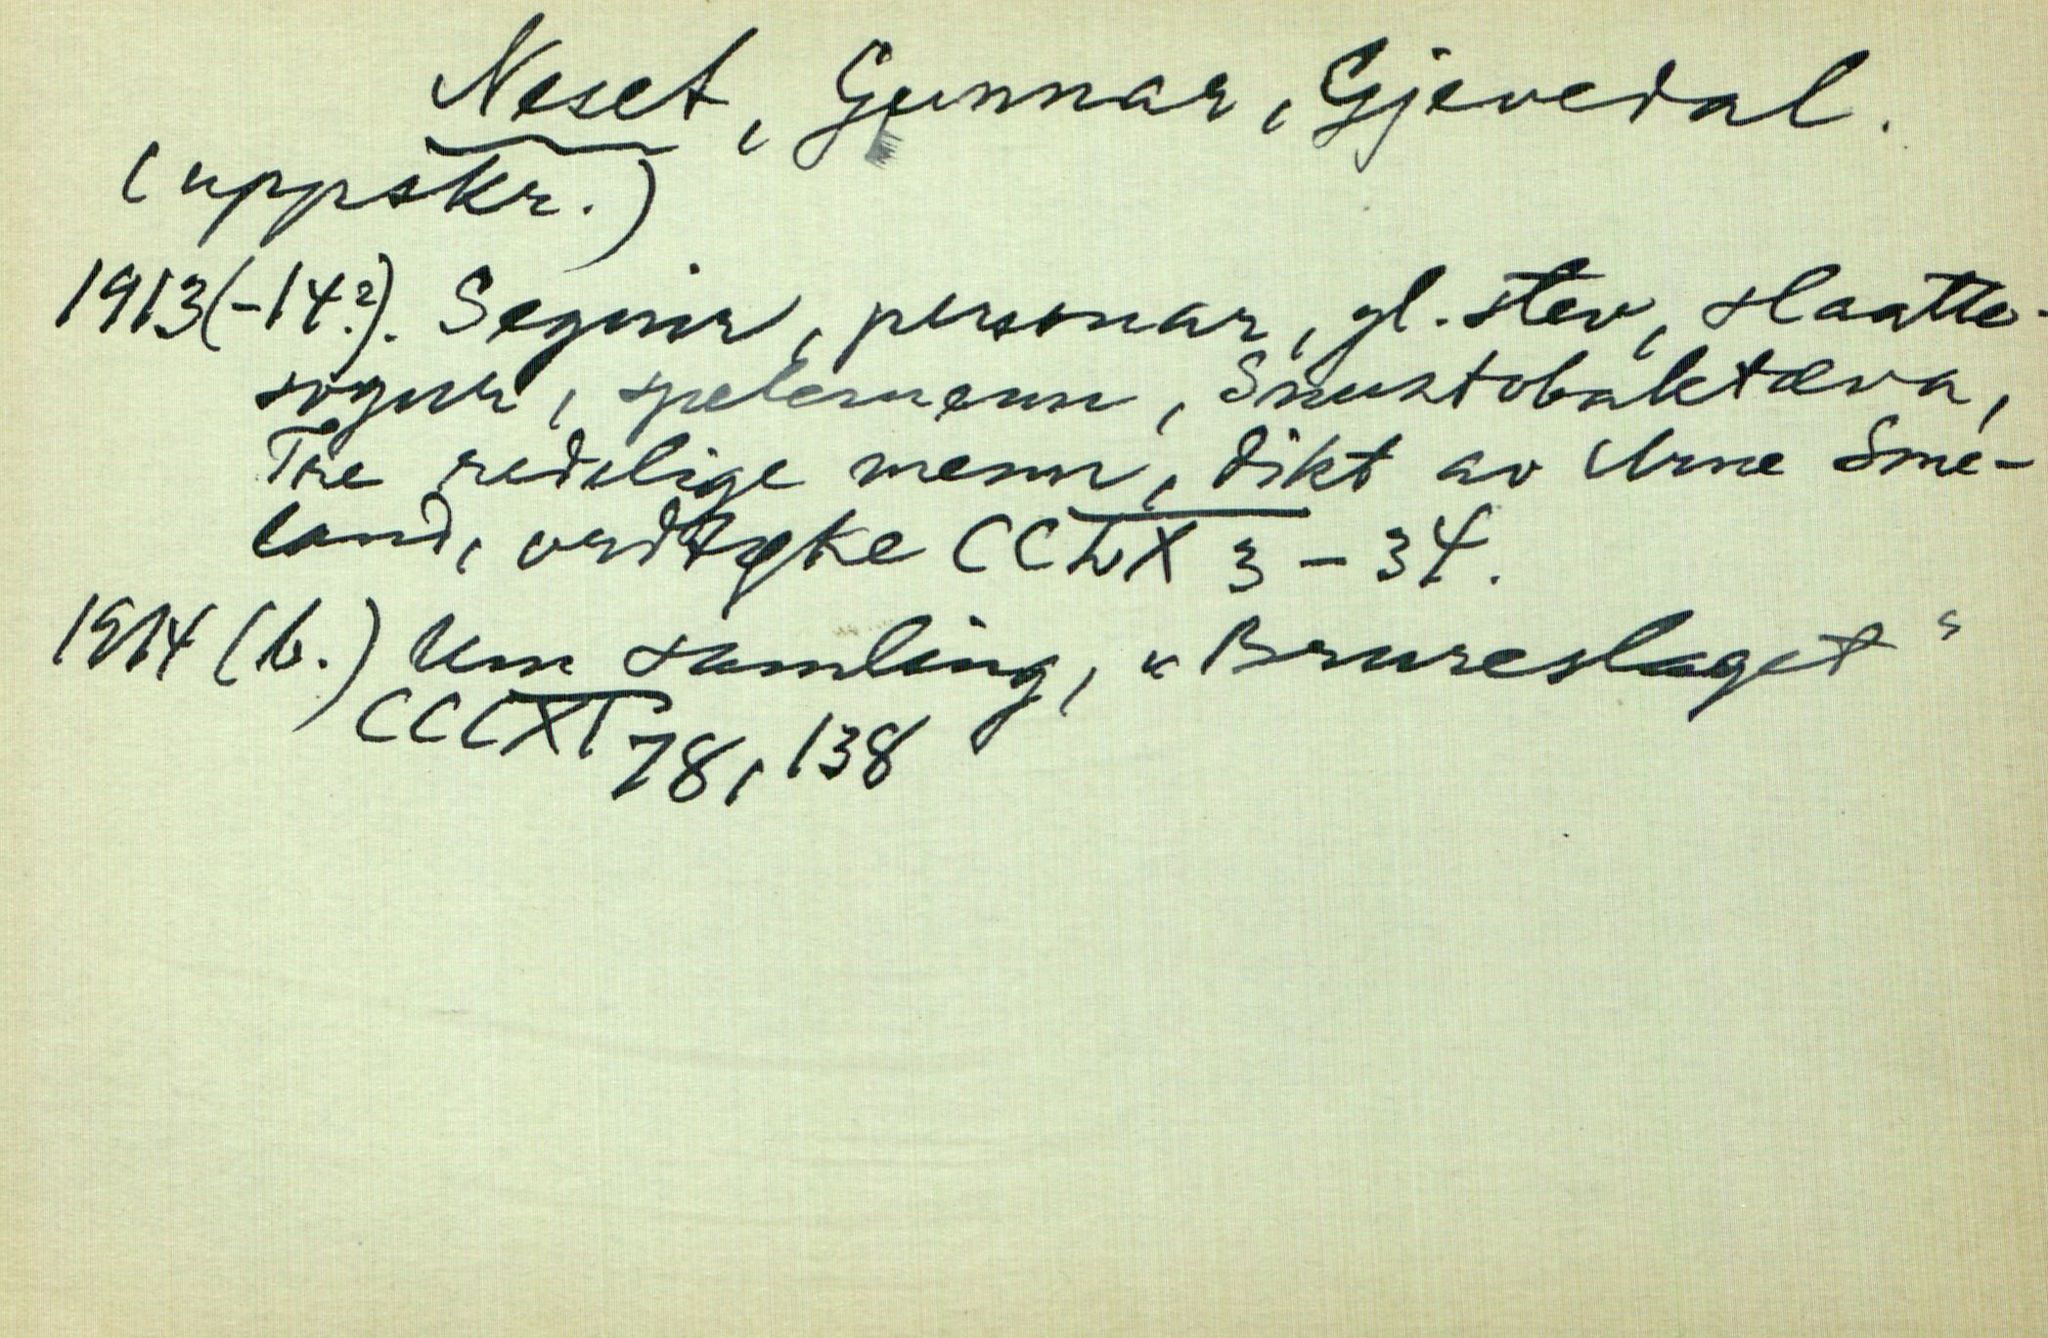 Neset, Gunnar, Gjevedal.
(uppskr.)
1913(-14?). Segnir, personar, gl. stev, slaatte-
sogur, spelemenn, Snustobaktæva,
Tre redelige menn, dikt av Arne Sme-
land, ordtøke CCLXX 3-34.
1914 (b.) Um samling, „Brureslaget"
CCCXI 78, 138